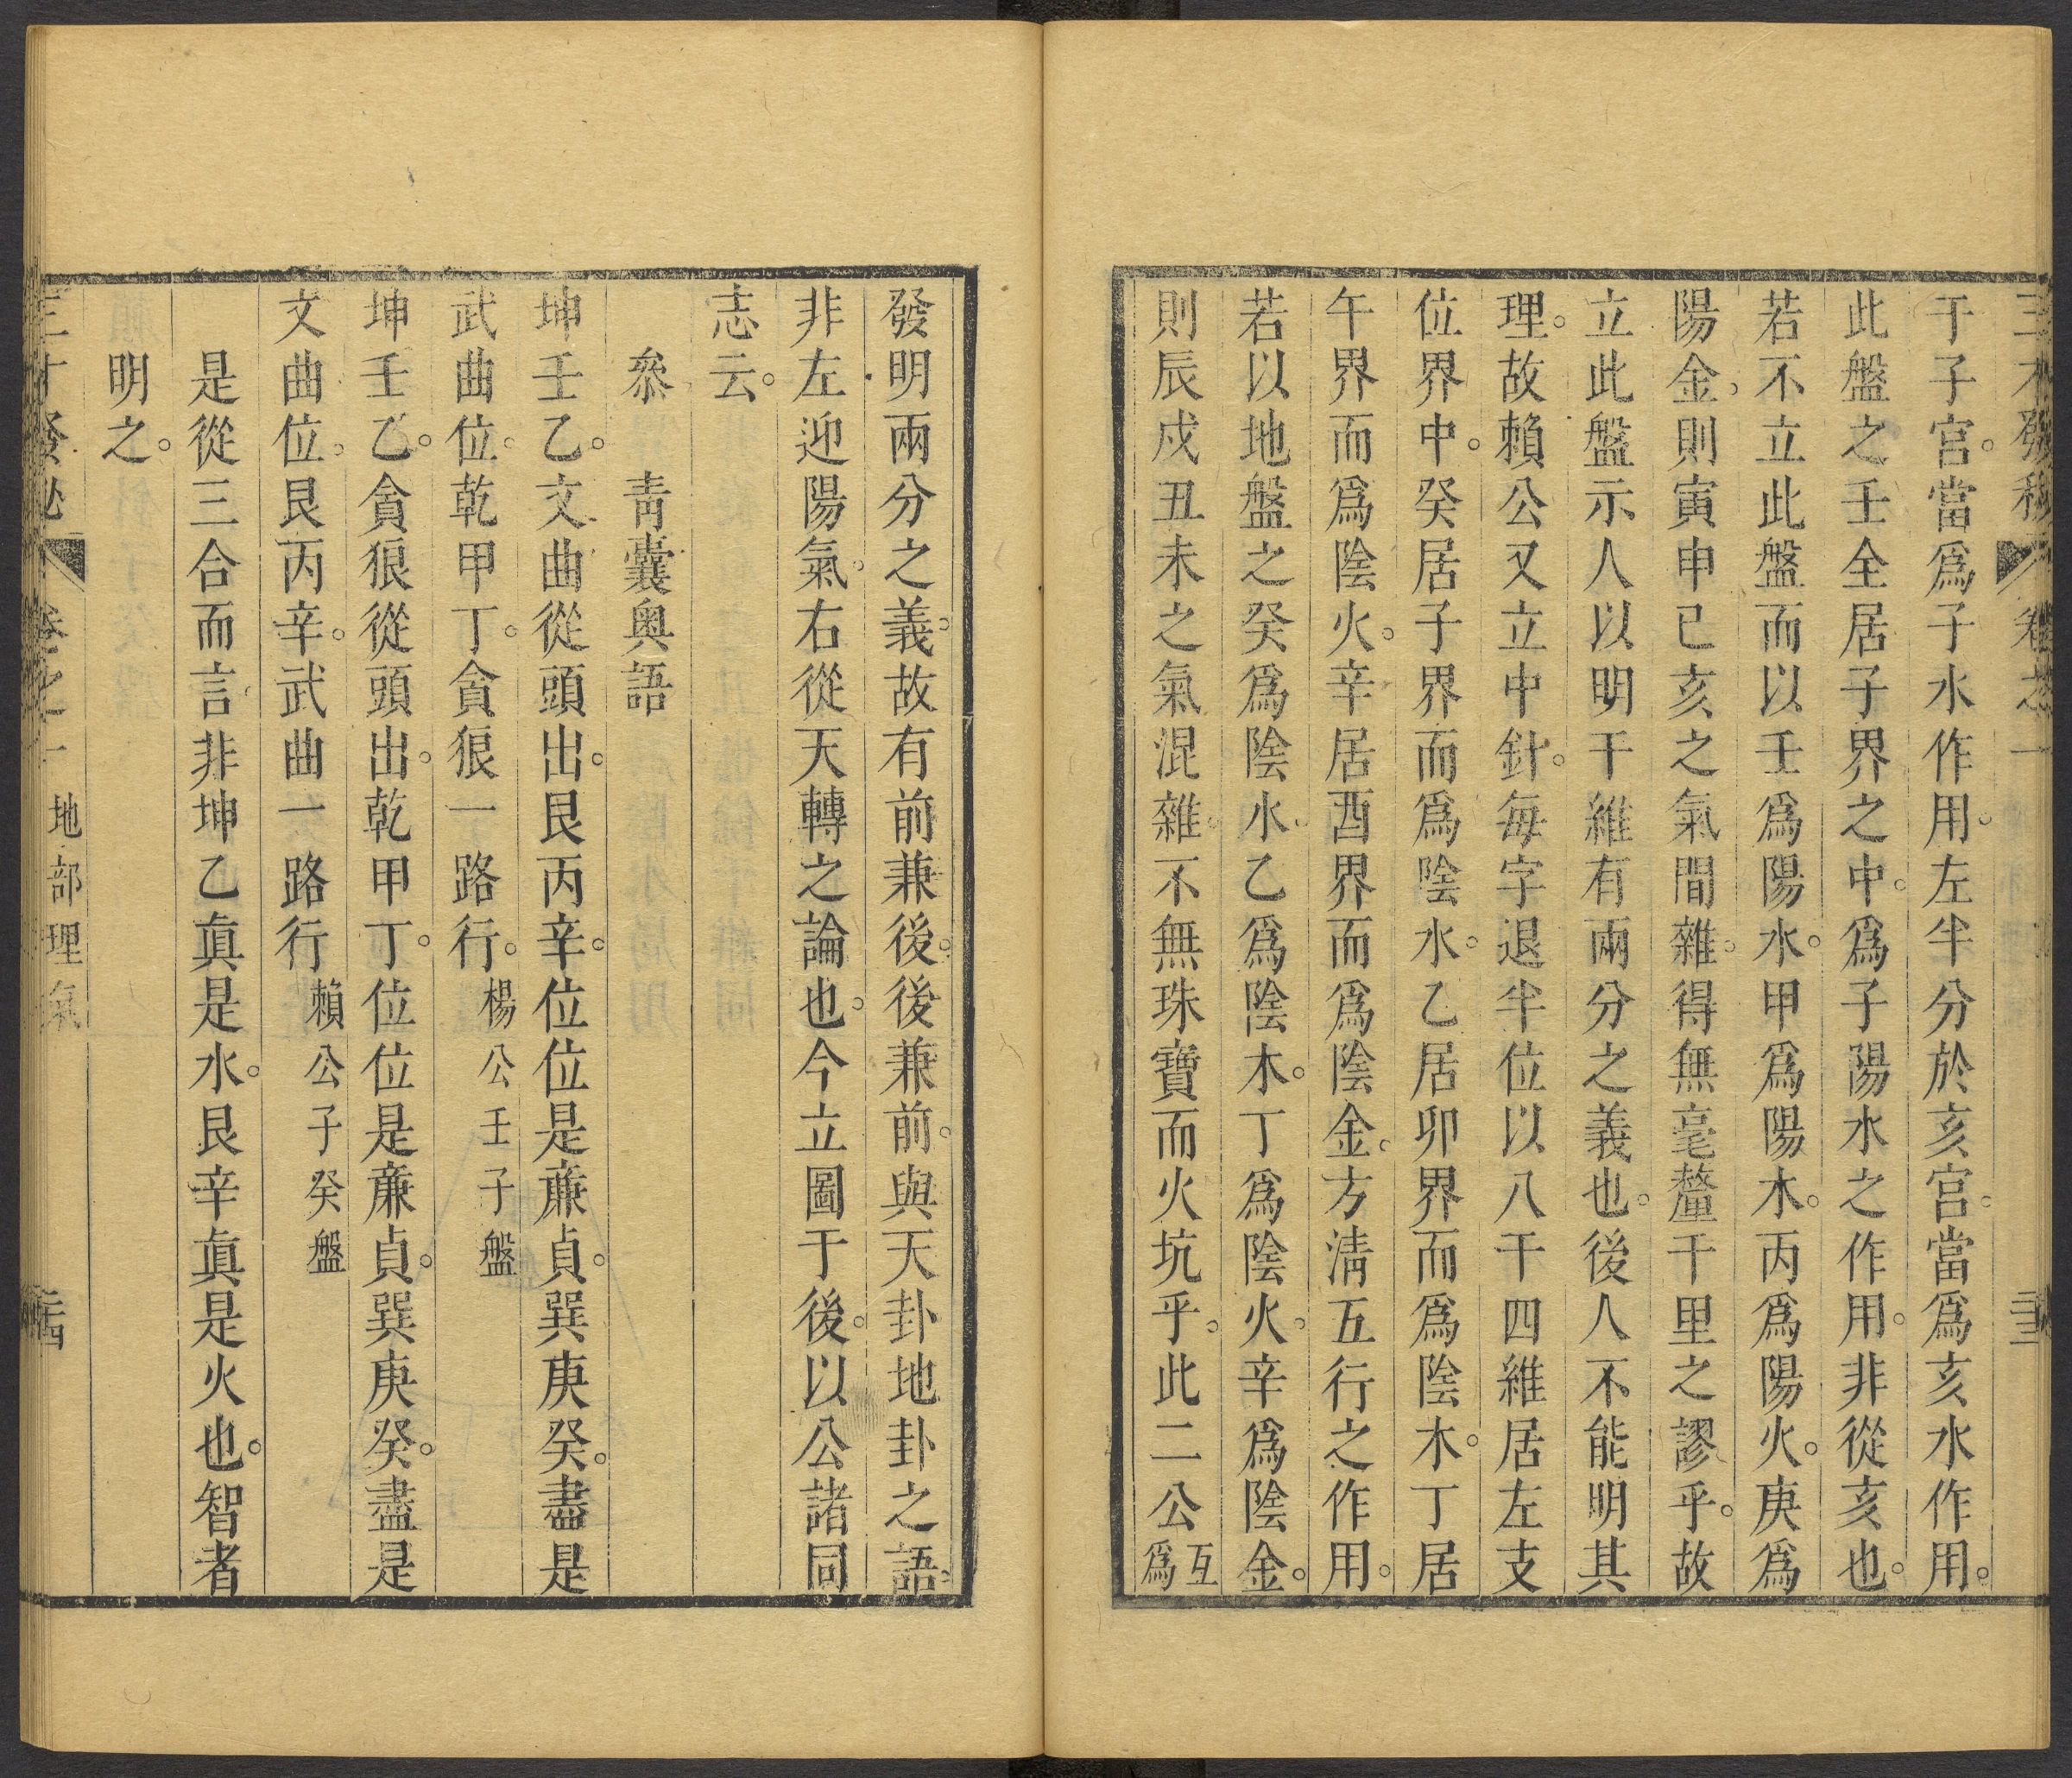 三才發秘 卷之一 三三
于子宮。當爲子水作用。左半分於亥宮。當爲亥水作用。
此盤之壬全居子界之中。爲子陽水之作用。非從亥也。
若不立此盤而以壬爲陽水。甲爲陽木。丙爲陽火。庚爲
陽金。則寅申巳亥之氣間雜。得無毫釐千里之謬乎。故
立此盤示人以明干維有兩分之義也。後人不能明其
理。故賴公又立中針。每字退半位以八干四維居左支
位界中。癸居子界而爲陰水。乙居卯界而爲陰木。丁居
午界而爲陰火。辛居酉界而爲陰金。方清五行之作用。
若以地盤之癸爲陰水。乙爲陰木。丁爲陰火。辛爲陰金。
則辰戌丑未之氣混雜。不無珠寶而火坑乎。此二公互爲
發明兩分之義。故有前兼後。後兼前。與天卦地卦之語。
非左迎陽氣。右從天轉之論也。今立圖于後。以公諸同
志云。
叅 青囊奧語
坤壬乙。文曲從頭出。艮丙辛。位位是亷貞。巽庚癸。盡是
武曲位。乾甲丁。貪狼一路行。楊公壬子盤
坤壬乙。貪狼從頭出。乾甲丁。位位是亷貞。巽庚癸。盡是
文曲位。艮丙辛。武曲一路行 賴公子癸盤
是從三合而言。非坤乙眞是水。艮辛眞是火也。智者
明之。
三才發秘 卷之一 地部理氣 三四